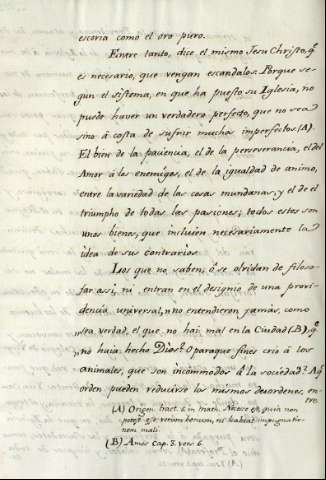 escoria como el oro puro.
Entre tanto, dice el mismo Jesu Christo, q.^e
es necesario, que vengan escandalos. Porque se-
gun el sistema, en que ha puesto su Iglesia, no
puede haver un verdadero perfecto, que no sea
sino á costa de sufrir muchos imperfectos (A).
El bien de la paciencia, el de la perseverancia, el del
Amor á los enemigos, el de la igualdad de animo,
entre la variedad de las cosas mundanas, y el de el
triumpho de todas las pasiones; todos estos son
unos bienes, que incluien necesariamente la
idea de sus contrarios.
Los que no saben, ó se olvidan de filoso-
far assi, ni entran en el designio de una provi-
dencia universal, no entendieron jamás, como
sea verdad, el que no hai mal en la Ciudad (B), q.^e
no haia hecho Dios? O para que fines crió á los
animales, que son incómmodos á la sociedad? A q.^e
orden pueden reducirse los mismos desordenes, en-
tre
(A) Origen. tract. in Math. Necese est, quia non
potest esse verum bonum, ni habeat impugnatio-
nem mali.
(B) Amós Cap. 3. vers. 6.